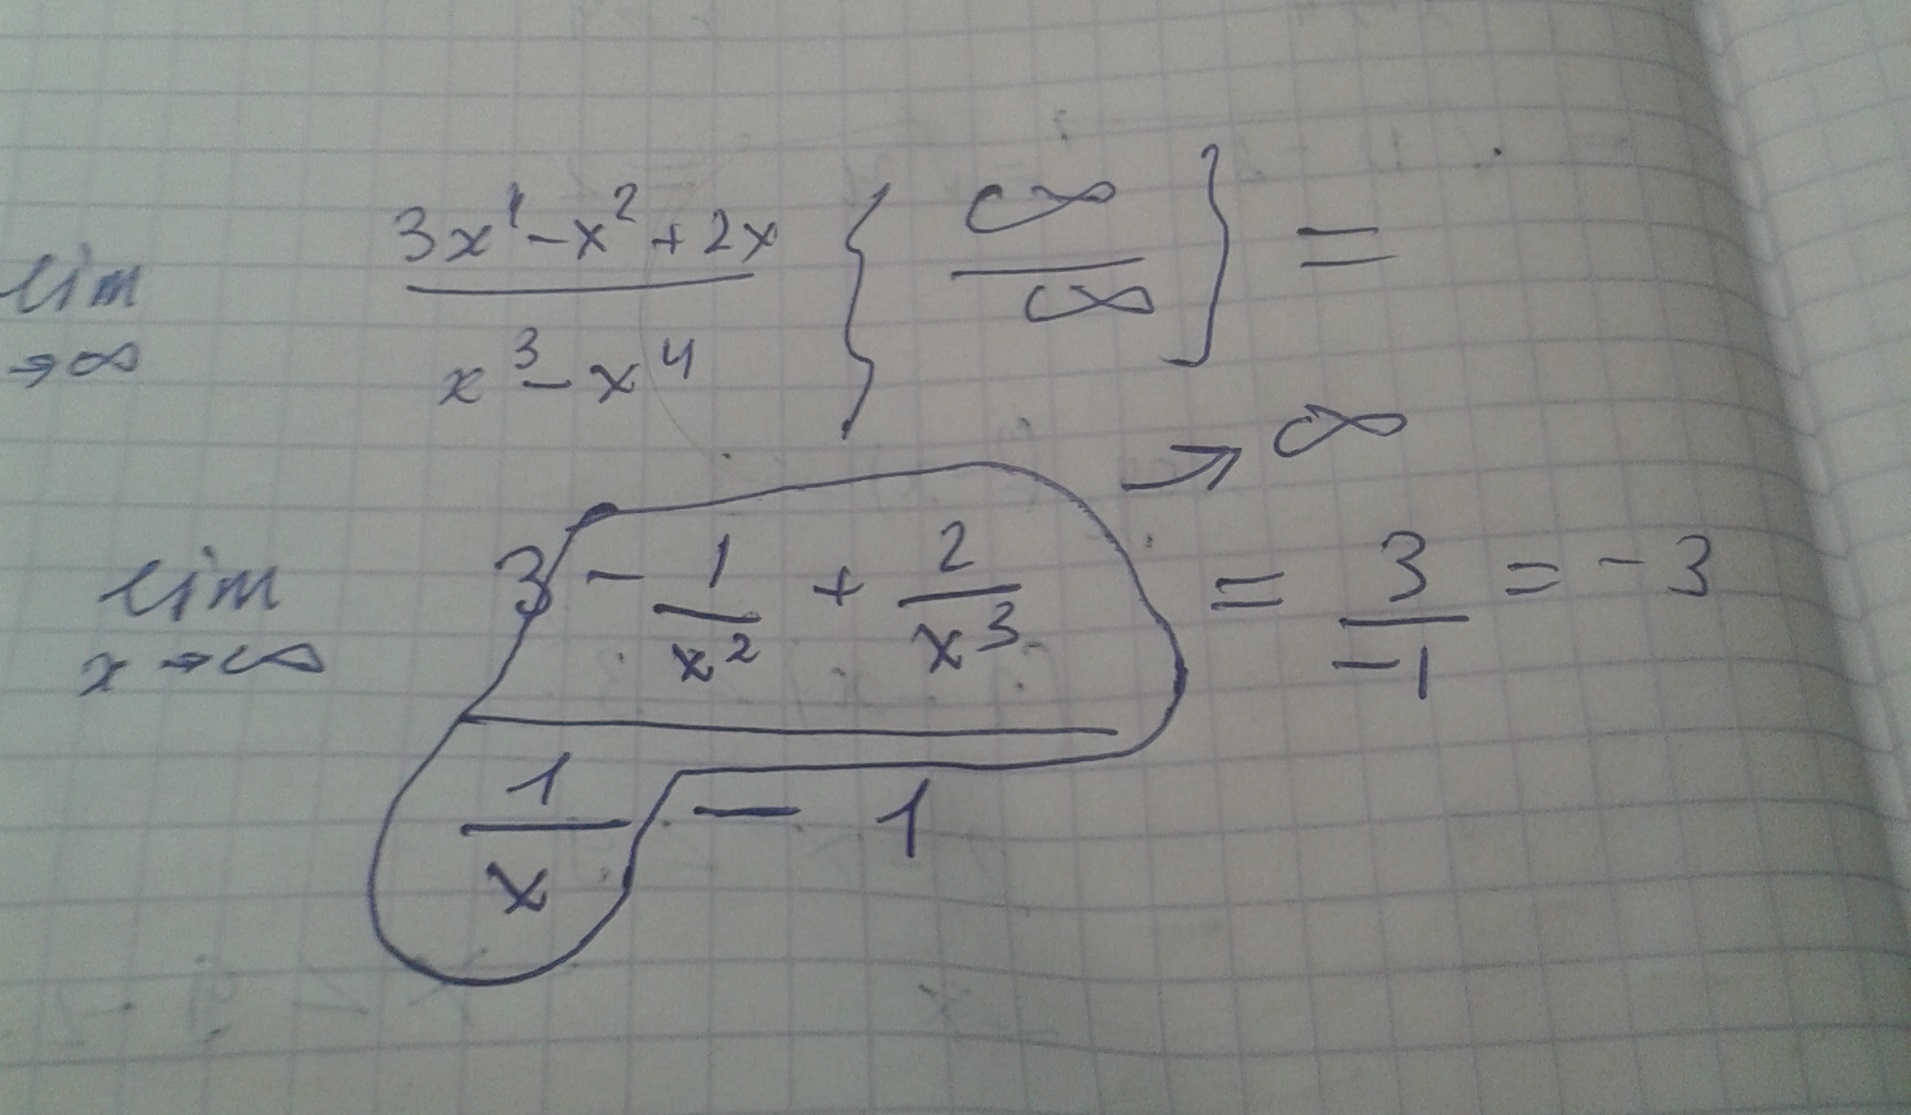 lim 3x¹-x²+2x / x³-x⁴ { ∞/∞ } =
→∞
→ ∞
lim 3 - 1/x² + 2/x³ / 1/x - 1 = 3/-1 = -3
x→∞